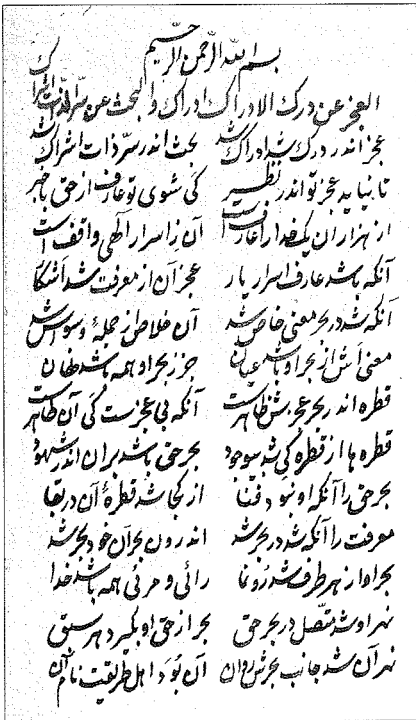 بسم الله الرحمن الرحیم
العجز عن درک الادراک ادراک والبحث عن سر الذات اشراک
عجز اندر درک شد ادراک بحث اندر سر ذات اشراک
تا نیاید عجز تو اندر نظر کی شوی تو عارف از حق باخبر
از هزاران یک خدا را عارف است آن ز اسرار الهی واقف است
آنکه باشد عارف اسرار یار عجز آن از معرفت شد آشکار
آنکه شد در بحر معنی خاص شد آن خلاص از جمله وسواس شد
معنی اش از بحر او باشد عیان جزر بحر او همه باشد نهان
قطره اندر بحر عجزش ظاهر است آنکه بی عجز است کی آن طاهر است
قطره ها از قطره کی شد موجود بحر حق باشد بر آن اندر شهود
بحر حق را آنکه او نبود فنا از کجا شد قطره آن در بقا
معرفت را آنکه شد در بحر شد اندرون بحر آن خود بحر شد
بحر او از هر طرف شد رونما رائی و مرئی همه باشد خدا
نهر او شد متصل در بحر حق بحر از حق او بگیرد هر سبق
نهر آن شد جانب بحرش روان آن بود اهل طریقت نام آن